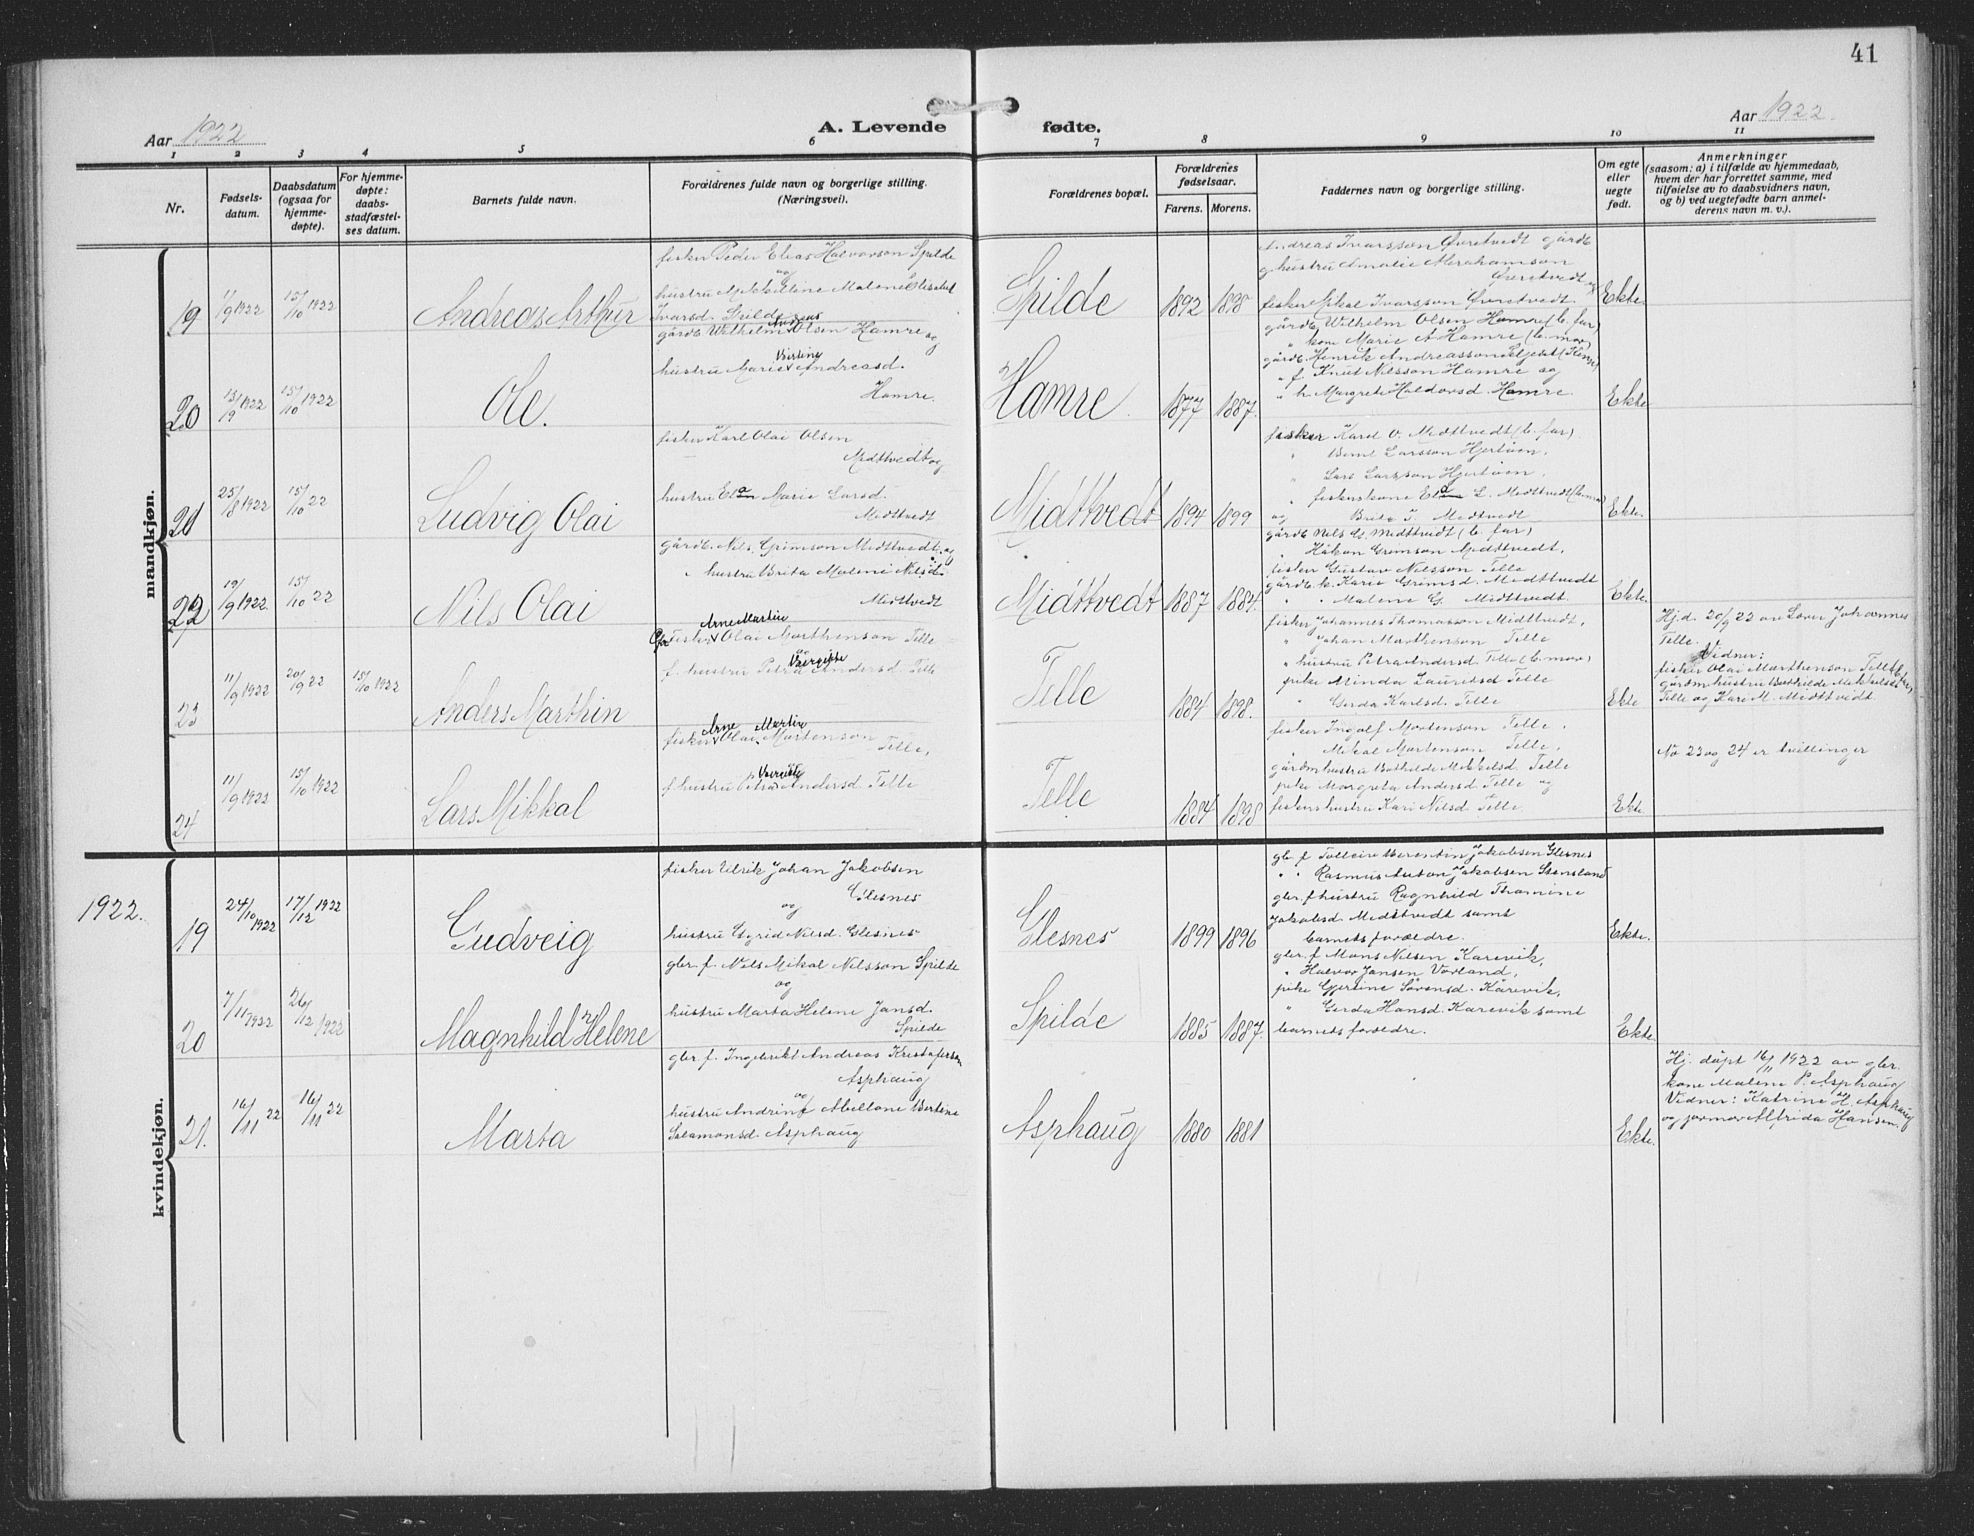 41
Aar 1922
A. Levende fødte.
Aar 1922.
1 2 3 4 5 6 7 8 9 10 11
Nr.
Fødsels-
datum.
Daabsdatum
(ogsaa for
hjemme-
døpte).
For hjemme-
døpte:
daabs-
stadfæstel-
ses datum.
Barnets fulde navn.
Forældrenes fulde navn og borgerlige stilling.
(Næringsvei).
Forældrenes bopæl.
Forældrenes
fødselsaar.
Farens. Morens.
Faddernes navn og borgerlige stilling.
Om egte
eller
uegte
født.
Anmerkninger
(saasom: a) i tilfælde av hjemmedaab,
hvem der har forrettet samme, med
tilføielse av to daabsvidners navn,
og b) ved uegtefødte barn anmel-
derens navn m. v.).
mandkjøn.
19
11/9 1922
15/10 1922
Andreas Arthur
fisker Peder Elias Halvorson Spilde
og
hustru Mikkeline Malene Elisabet
Ivarsd. Spilde
Spilde
1892
Andreas Ivarsson Øvretvedt gårdb.
og hustru Amalie Abrahamson
Øvretvedt og
fisker Mikal Ivarsson Øvretvedt.
Ekte
20
15/10 1922
Ole.
gårdb. Wilhelm Olsen Hamre og
hustru Marie Bertine Andreasd.
Hamre.
Hamre.
1877 1887.
gårdb. Wilhelm Olsen Hamre (b. far)
" kone Marie A Hamre (b. mor)
" f. Knut Nilsson Hamre og
" h. Margrete Haldorsd. Hamre.
Ekte
21
25/8 1922
15/10 22
Ludvig Olai
fisker Karl Olai Olsen
Midttvedt og
hustru Marie Larsd.
Midttvedt
Midttvedt
1894 1899
fisker Karl O. Midttvedt (b. far).
" Bernt Larsson Hjertøen,
" Lars Larsson Hjertøen,
" fiskerkone L. Midttvedt (b. mor)
og Brita J. Midttvedt
Ekte.
22
19/9 1922.
15/10 22
Nils Olai
gårdb. Nils Grimson Midttvedt og
" hustru Brita Malene Nilsd.
Midttvedt
Midttvedt
1887 1884.
gårdb. Nils G. Midttvedt (b. far)
" Håkon Grimson Midttvedt,
fisker Gustav Nilsson Telle
gårdb. k. Karie Grimsd. Midttvedt
" " Malene G. Midttvedt.
Ekte.
23
11/9 1922
20/9 22
15/10 1922
Anders Marthin
Arne Martin
fisker Olai Marthenson Telle
f. hustru Petra Andersd. Telle
Telle
1884 1898.
fisker Johannes Thomasson Midttvedt,
" Johan Marthenson Telle
" hustru Petra Andersd. Telle (b. mor)
pike Minda Lauritsd Telle
" Gerda Karlsd. Telle
Ekte
Hj.d. 20/9 22 av Lars Johannes
Telle. Vidner:
fisker Olai Marthenson Telle (b. far),
gårdmhustru Bothilde Mikkelsd.
Telle og Kari M. Midttvedt
24
11/9 1922
15/10 1922
Lars Mikkal
Arne Martin
fisker Olai Martenson
Telle,
f. hustru Petra Andersd. Telle
Telle
1884 1898
fisker Ingolf Mortenson Telle,
" Mikal Mortenson Telle,
gårdmhustru Bothilde Mikkelsd. Telle
pike Margreta Andersd. Telle og
fiskershustru Kari Nilsd Telle.
Ekte.
No 23 og 24 er tvillinger
kvindekjøn.
1922.
19
24/10 1922
17/12 1922
Gudveig
fisker Ulrik Johan Jakobsen
Glesnes
og
hustru Sigrid Nilsd. Glesnes
Glesnes
1899 1896
gbr. f Tolleiv Berentin Jakobsen Glesnes
" " Rasmus Anton Jakobsen Steinsland
gbr. f hustru Ragnhild Thomine
Jakobsd. Midttvedt samt
barnets forældre.
Ekte.
20
7/11 1922
26/12 1922
Magnhild Helene
gbr. f. Nils Mikal Nilsson Spilde
og
hustru Marta Helene Jansd.
Spilde
Spilde
1885 1887.
gbr. f Mons Nilsen Karevik,
" Halvor Jansen Vorland,
pike Gjertine Sørensd. Kårevik,
" Gerda Hansd. Karevik samt
barnets forældre.
Ekte.
21.
16/11 22
16/11 22
Marta
gbr. f. Ingebrikt Andreas Kristoferson
Asphaug
og
hustru Andrine Abellone Bertine
Salamonsd. Asphaug
Asphaug
1880 1881
Ekte.
Hj. døpt 16/11 1922 av gbr.
kone Malene P. Asphaug
Vidner: Katrine H. Asphaug
og jormor Alfrida Hansen.